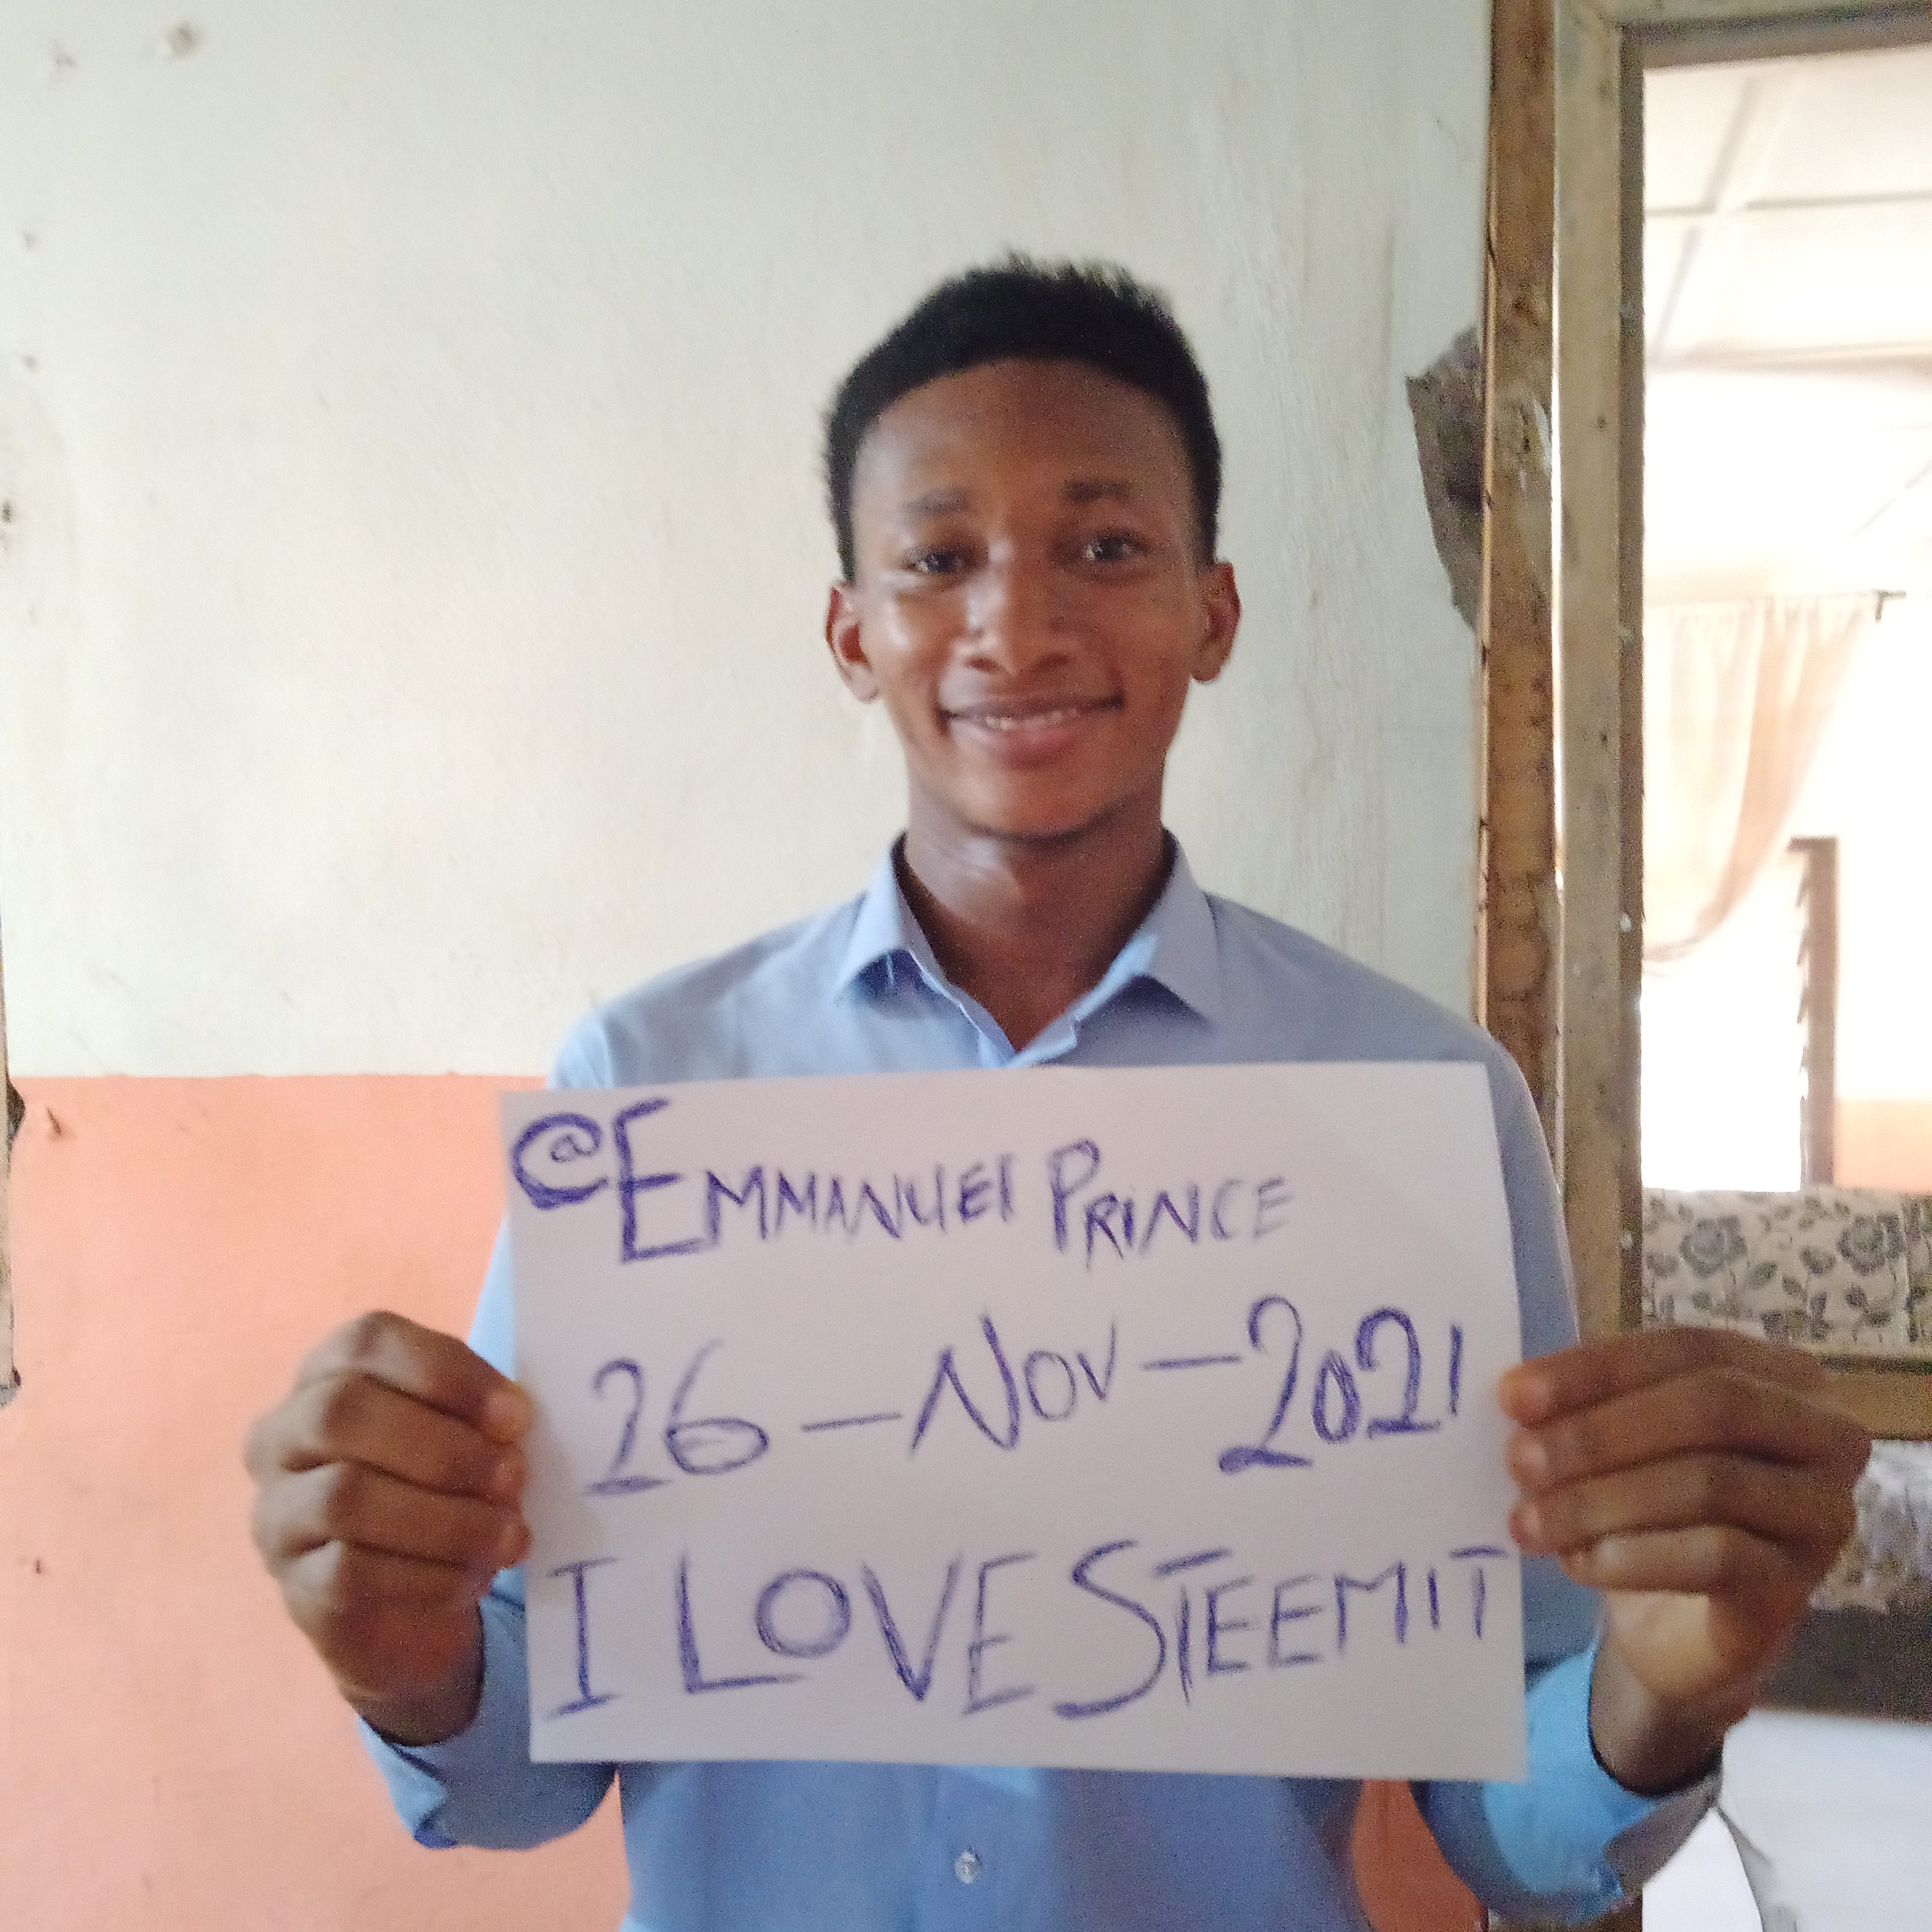 @EMMANUEl PRINCE
26-NOV-2021
I LOVE STEEMIT